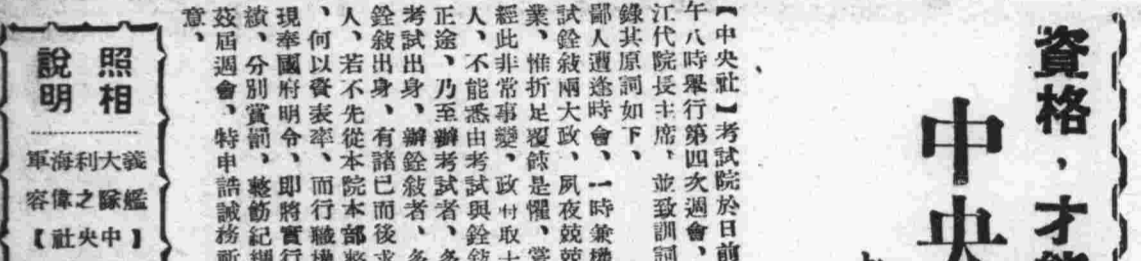 資格，才
中央
【中央社】考試院於日前
午八時舉行第四次週會、
江代院長主席、並致訓詞
錄其原詞如下、
鄙人遭逢時會、一時兼
試銓敘兩大政、夙夜兢兢
業、惟折足覆餗是懼、
經此非常事變、政府取士
人、不能悉由考試與銓敘
正途、乃至辦考試者、
考試出身、辦銓敘者、
銓敘出身、有諸已而後求
人、若不先從本院本部整
、何以資表率、而行職權
現奉國府明令、即將實行
績、分別賞罰、整飭紀綱
茲屆週會、特申誥誡務
意、
照相
說明
義大利海軍
艦隊之偉容
【中央社】